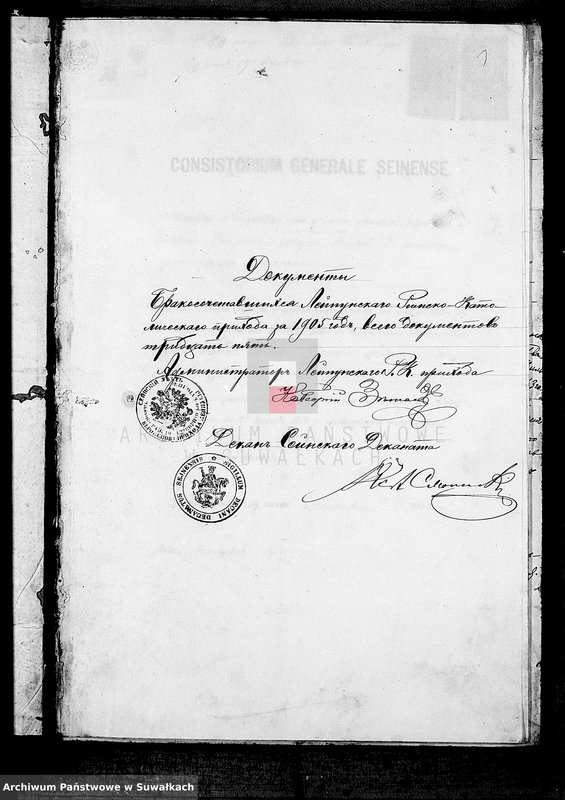 1
CONSISTORIUM GENERALE SEINENSE
Документы
Бракосочетавшихся Лейпунскаго Римско-Като-
лическаго прихода за 1905 годъ, всего документовъ
тридцать пять.
Администраторъ Лейпунскаго Р. К. прихода
ARCHIWUM PAŃSTWOWE
W SUWAŁKACH
Деканъ Сейнскаго Деканата
SIGILLUM DECANI DECANATUS SEINENSIS
Archiwum Państwowe w Suwałkach